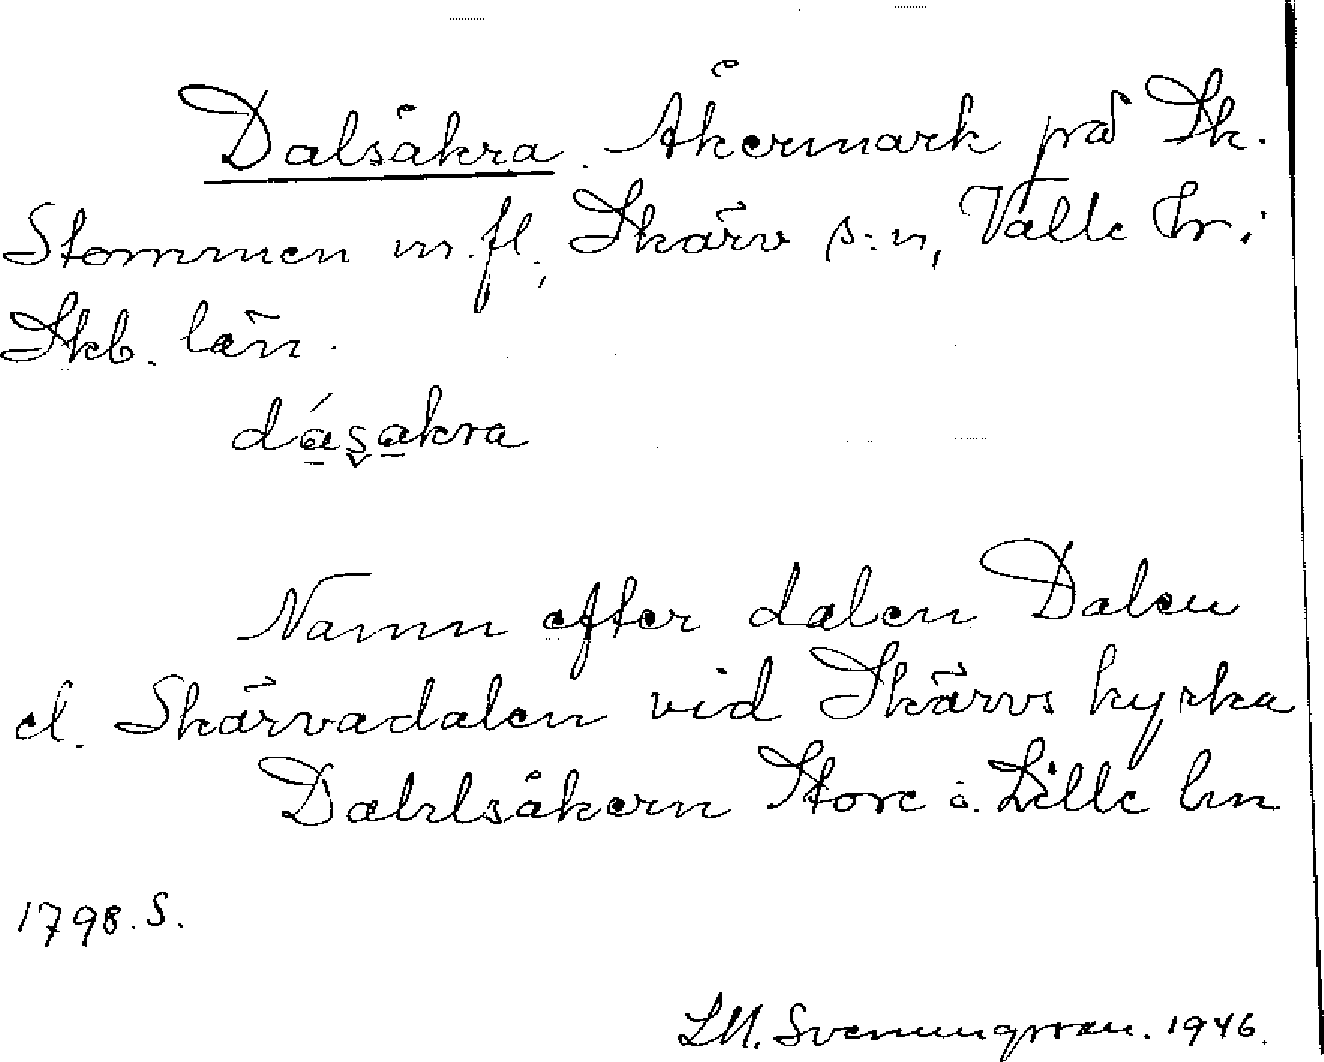 Dalsåkra. Åkermark på Sk.
Stommen m.fl., Skärv s:n, Valle hr. i
Skb. län.
dásakra
Namn efter dalen Dalen
el. Skärvadalen vid Skärvs kyrka
Dahlsåkern Store o. Lille lm
1798. S.
LM. Svenungsson. 1946.